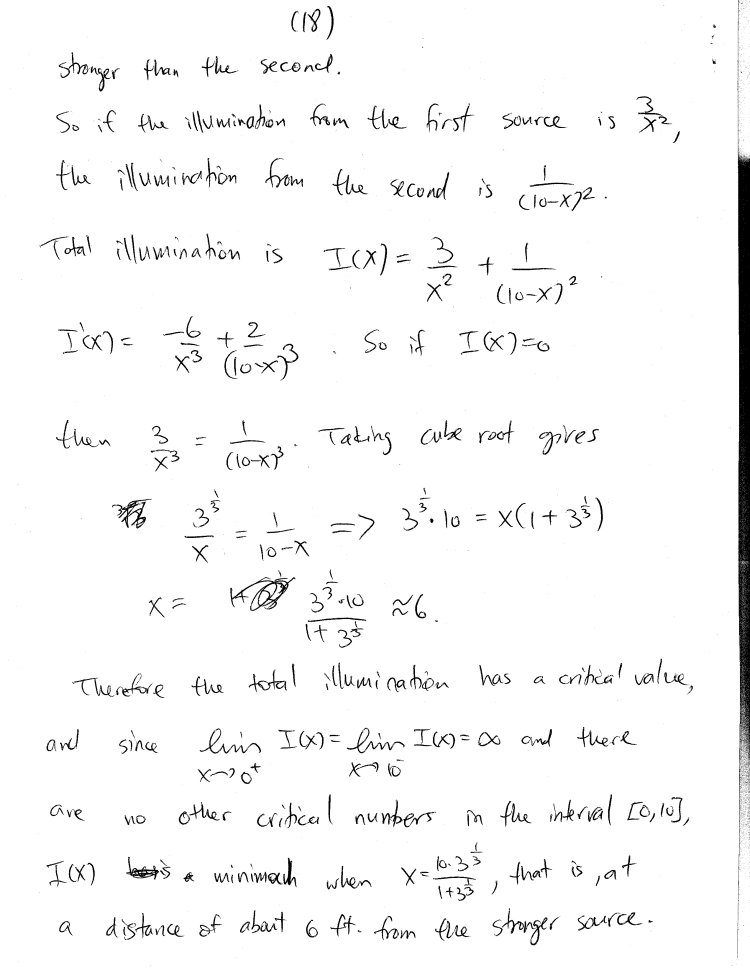 (18)
stronger than the second.
So if the illumination from the first source is 3/x²,
the illumination from the second is 1/(10-x)².
Total illumination is I(x) = 3/x² + 1/(10-x)²
I'(x) = -6/x³ + 2/(10-x)³ . So if I(x)=0
then 3/x³ = 1/(10-x)³. Taking cube root gives
3^(1/3)/x = 1/(10-x) => 3^(1/3)·10 = x(1+3^(1/3))
x = 3^(1/3)·10/(1+3^(1/3)) ≈6.
Therefore the total illumination has a critical value,
and since lim x→0⁺ I(x) = lim x→10⁻ I(x) = ∞ and there
are no other critical numbers in the interval [0,10],
I(x) is minimal when x = 10·3^(1/3)/(1+3^(1/3)), that is, at
a distance of about 6 ft. from the stronger source.